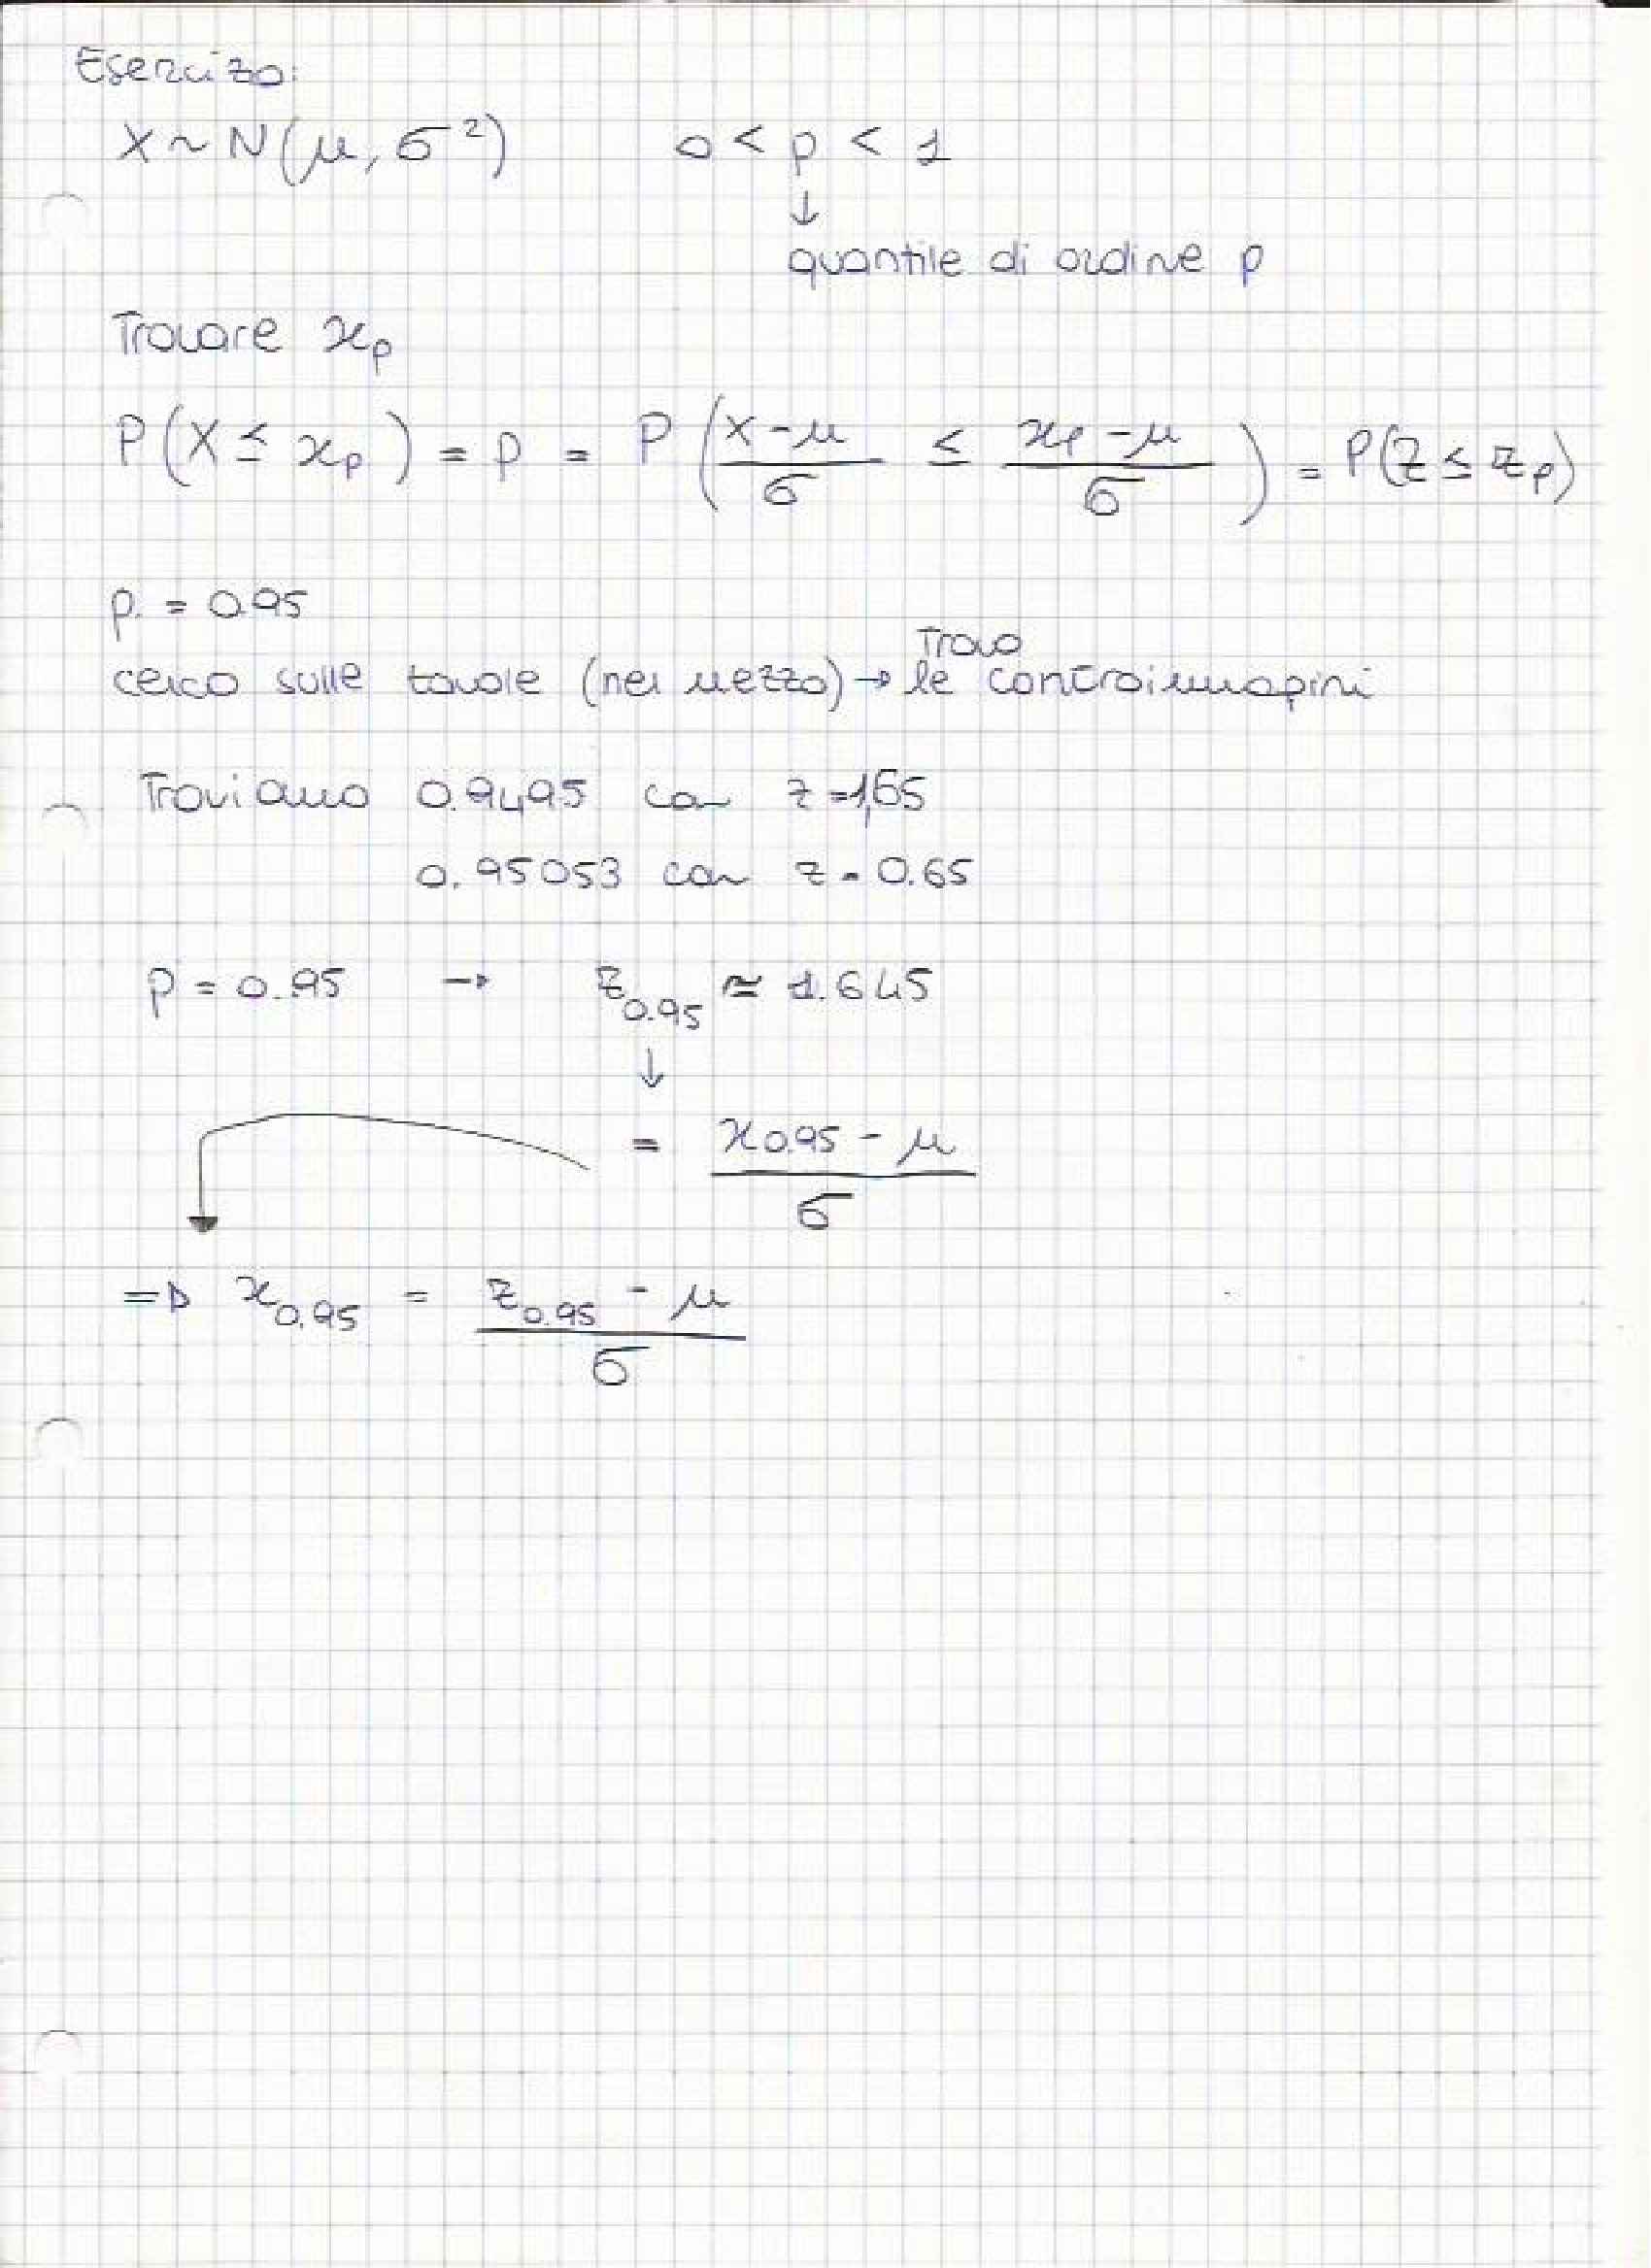 Esercizo:
X ~ N(μ, σ²) 0 < p < 1
↓
quantile di ordine p
Trovare xₚ
P(X ≤ xₚ) = p = P((X - μ)/σ ≤ (xₚ - μ)/σ) = P(Z ≤ zₚ)
p. = 0.95
Trovo
cerco sulle tavole (nel mezzo) → le controimmagini
Troviamo 0.9495 con z = 1,65
0.95053 con z = 0.65
p = 0.95 → z_0.95 ≃ 1.645
↓
= (x_0.95 - μ)/σ
=> x_0.95 = (z_0.95 - μ)/σ